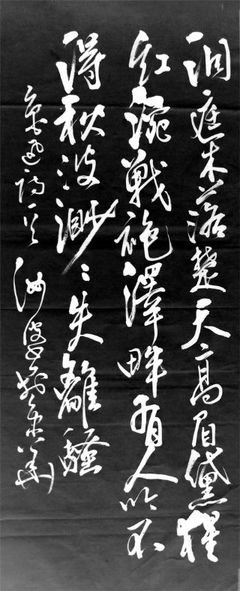 洞庭木落楚天高眉黛猩
紅涴戰袍澤畔有人吟不
得秋波渺々失離騷
魯迅詩